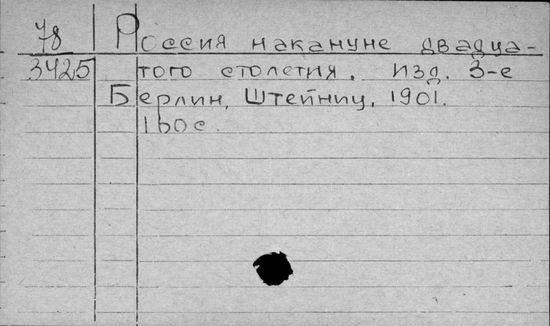 78
3425
Россия накануне двадца-
того столетия. Изд. 3-е
Берлин, Штейниц, 1901.
160 с.